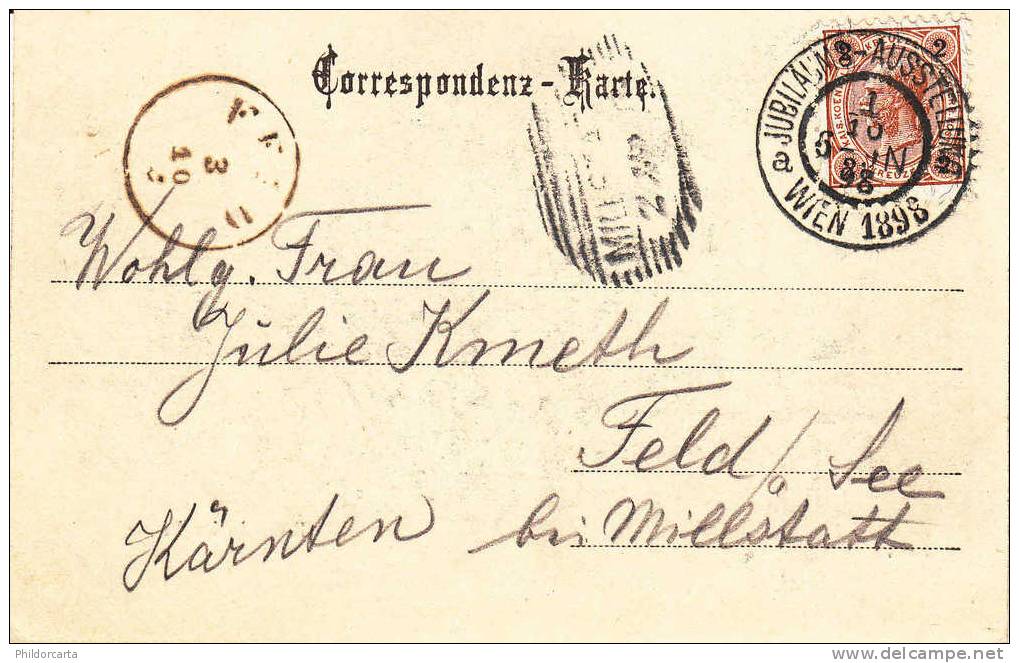 Correspondenz-Karte.
2 2
KREUZER
JUBILÄUMS-AUSSTELLUNG
a WIEN 1898
1
10
98
3
10
MILLS
2
Wohlg. Frau
Julie Kmeth
Feld/. See
Kärnten bei Millstatt
Phildorcarta
www.delcampe.net